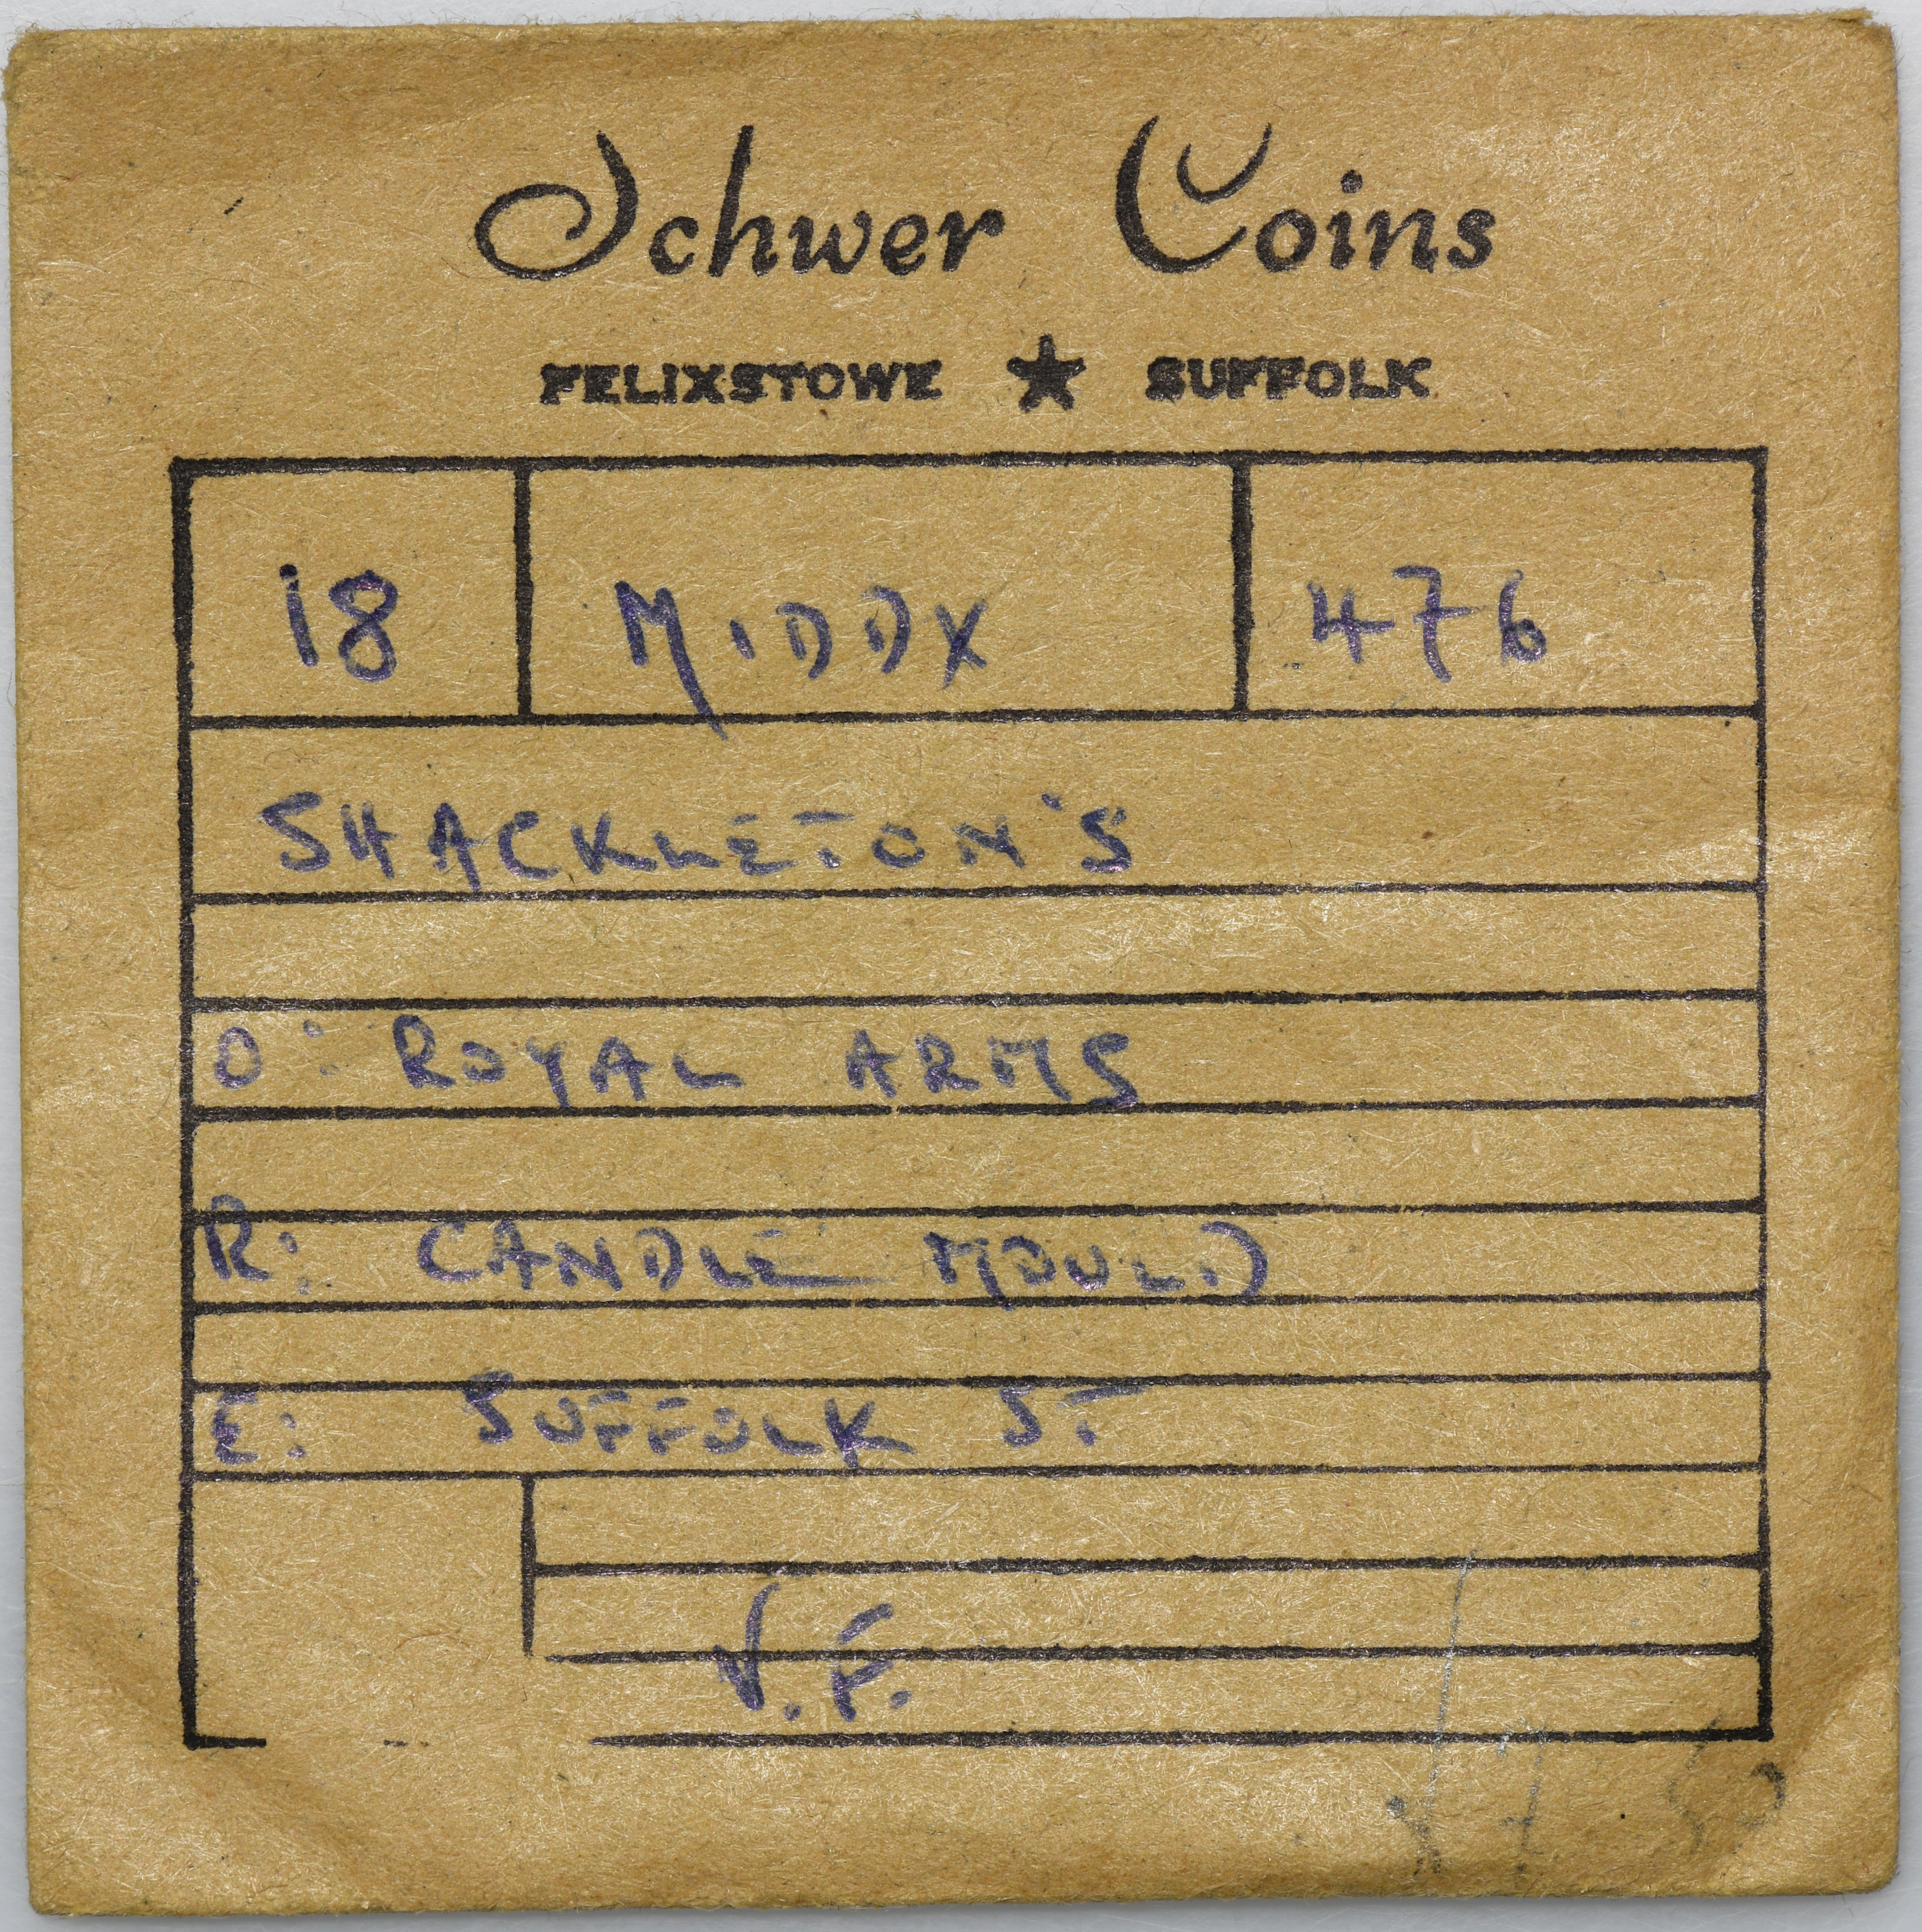 Schwer Coins
FELIXSTOWE ★ SUFFOLK
18 MIDDX 476
SHACKLETON'S
O: ROYAL ARMS
R: CANDLE MOULD
E: SUFFOLK ST
V.F.